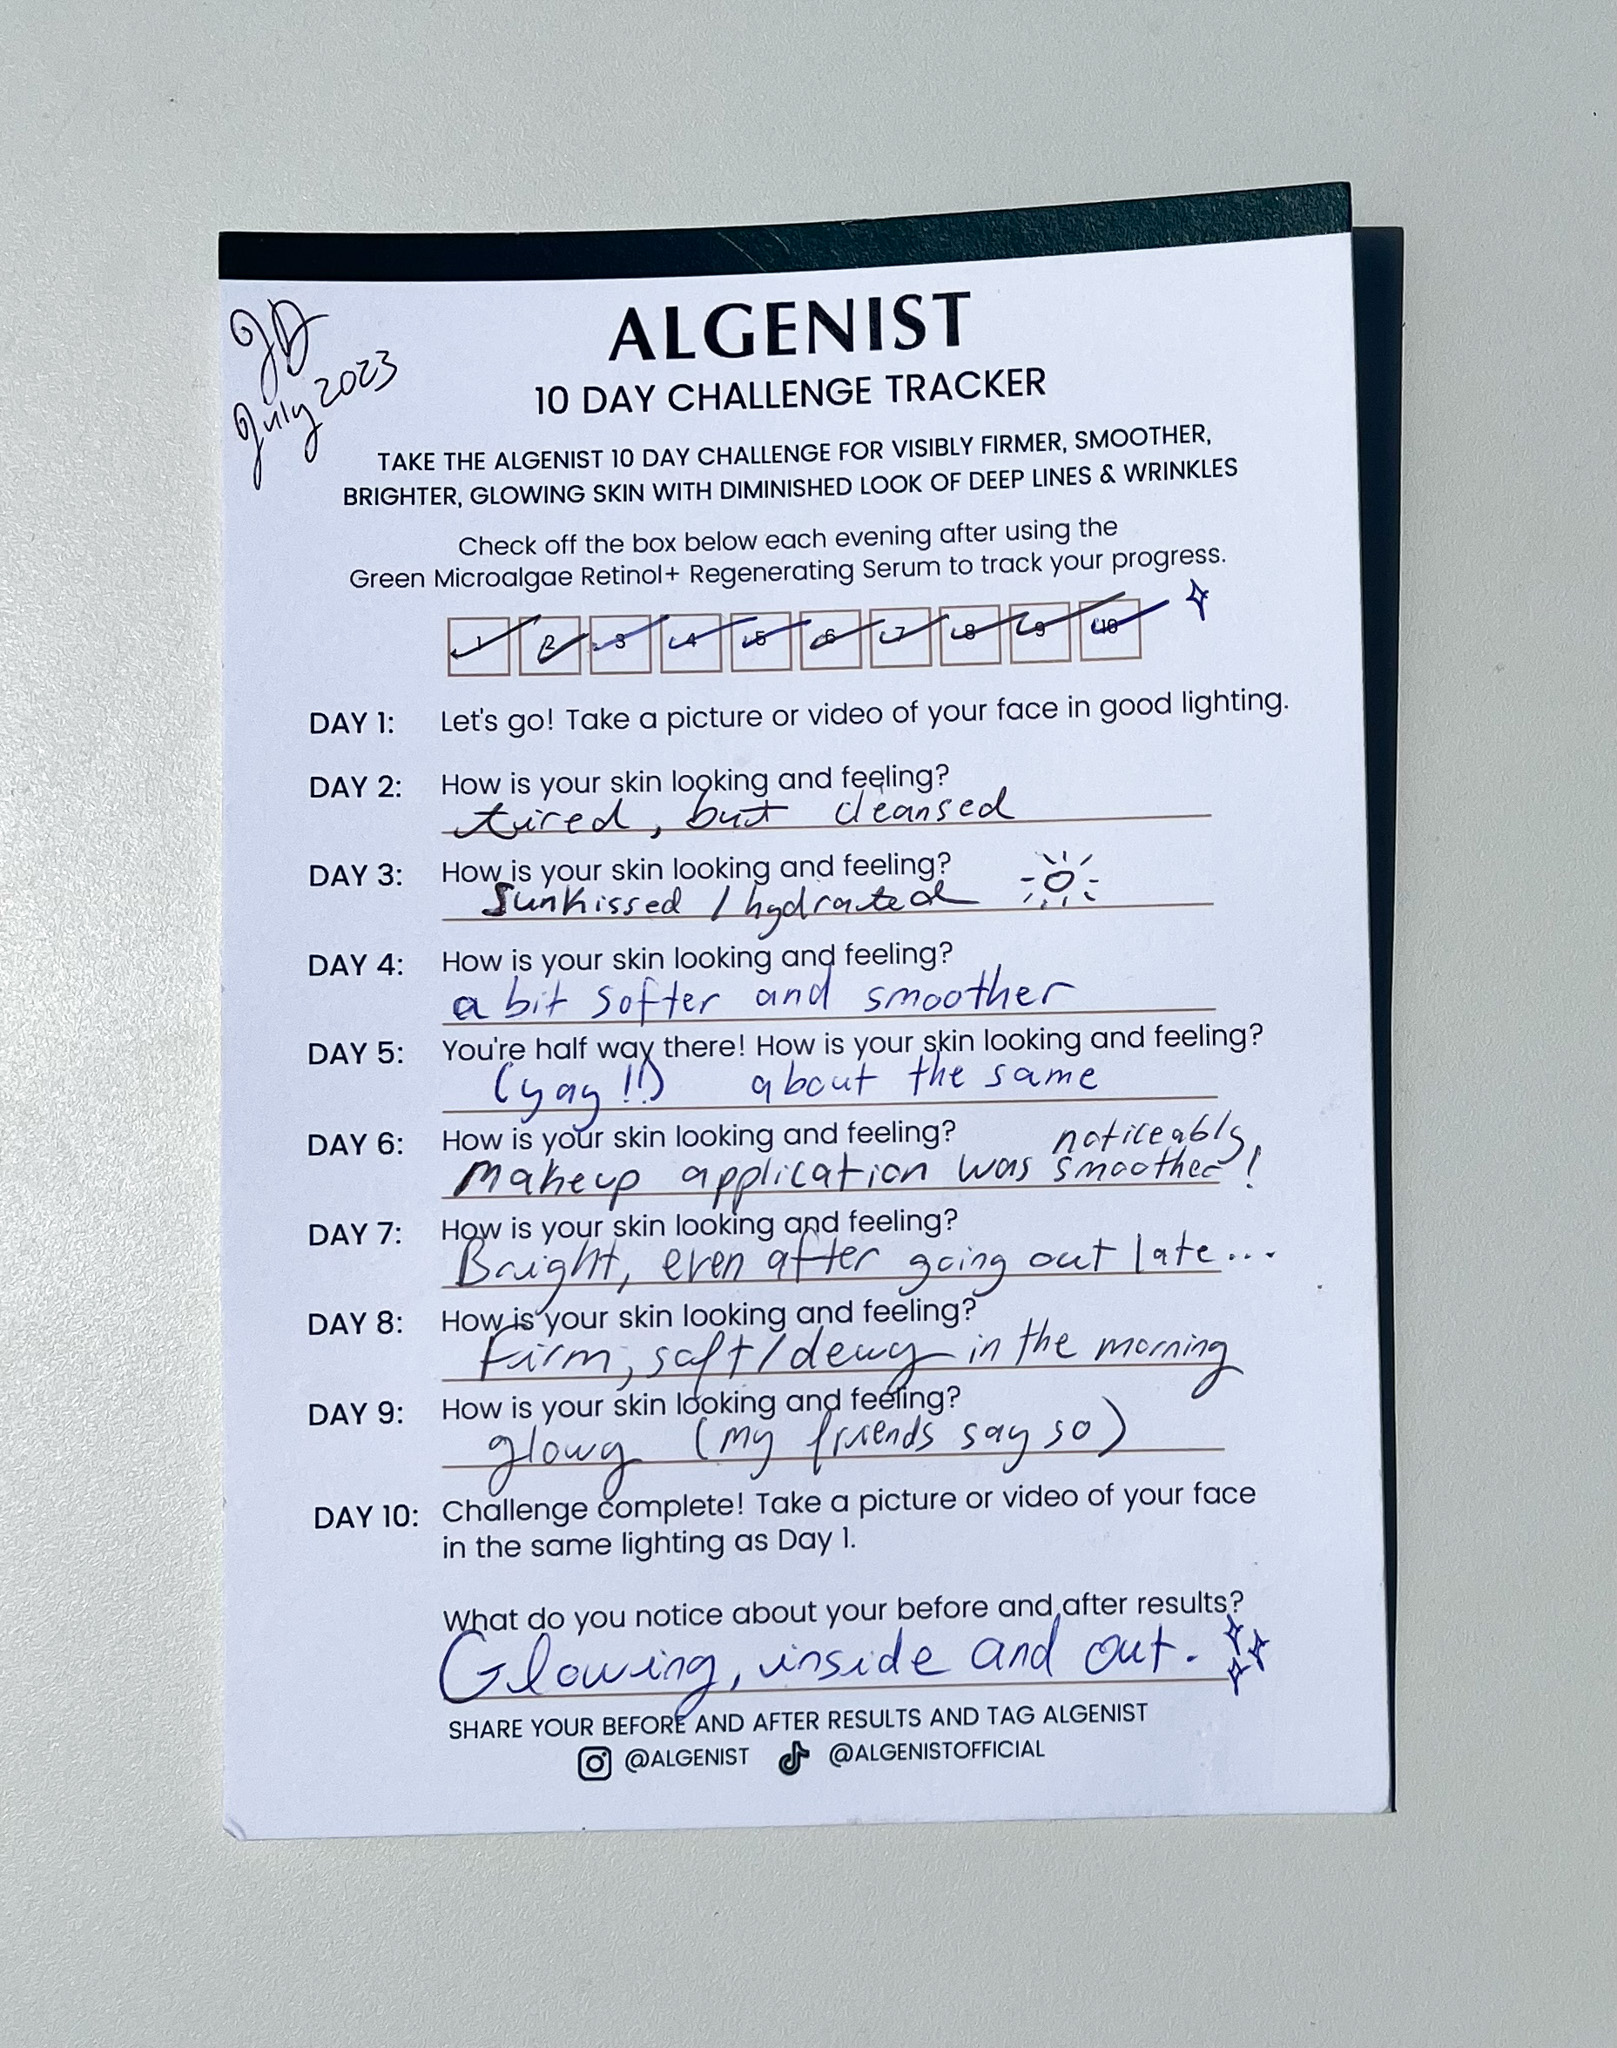 JD
July 2023
ALGENIST
10 DAY CHALLENGE TRACKER
TAKE THE ALGENIST 10 DAY CHALLENGE FOR VISIBLY FIRMER, SMOOTHER,
BRIGHTER, GLOWING SKIN WITH DIMINISHED LOOK OF DEEP LINES & WRINKLES
Check off the box below each evening after using the
Green Microalgae Retinol+ Regenerating Serum to track your progress.
1 2 3 4 5 6 7 8 9 10
DAY 1: Let's go! Take a picture or video of your face in good lighting.
DAY 2: How is your skin looking and feeling?
tired, but cleansed
DAY 3: How is your skin looking and feeling?
Sunkissed / hydrated
DAY 4: How is your skin looking and feeling?
a bit softer and smoother
DAY 5: You're half way there! How is your skin looking and feeling?
(yay!!) about the same
DAY 6: How is your skin looking and feeling?
Makeup application was noticeably smoother!
DAY 7: How is your skin looking and feeling?
Bright, even after going out late...
DAY 8: How is your skin looking and feeling?
Firm, soft/dewy in the morning
DAY 9: How is your skin looking and feeling?
glowy (my friends say so)
DAY 10: Challenge complete! Take a picture or video of your face
in the same lighting as Day 1.
What do you notice about your before and after results?
Glowing, inside and out.
SHARE YOUR BEFORE AND AFTER RESULTS AND TAG ALGENIST
@ALGENIST @ALGENISTOFFICIAL